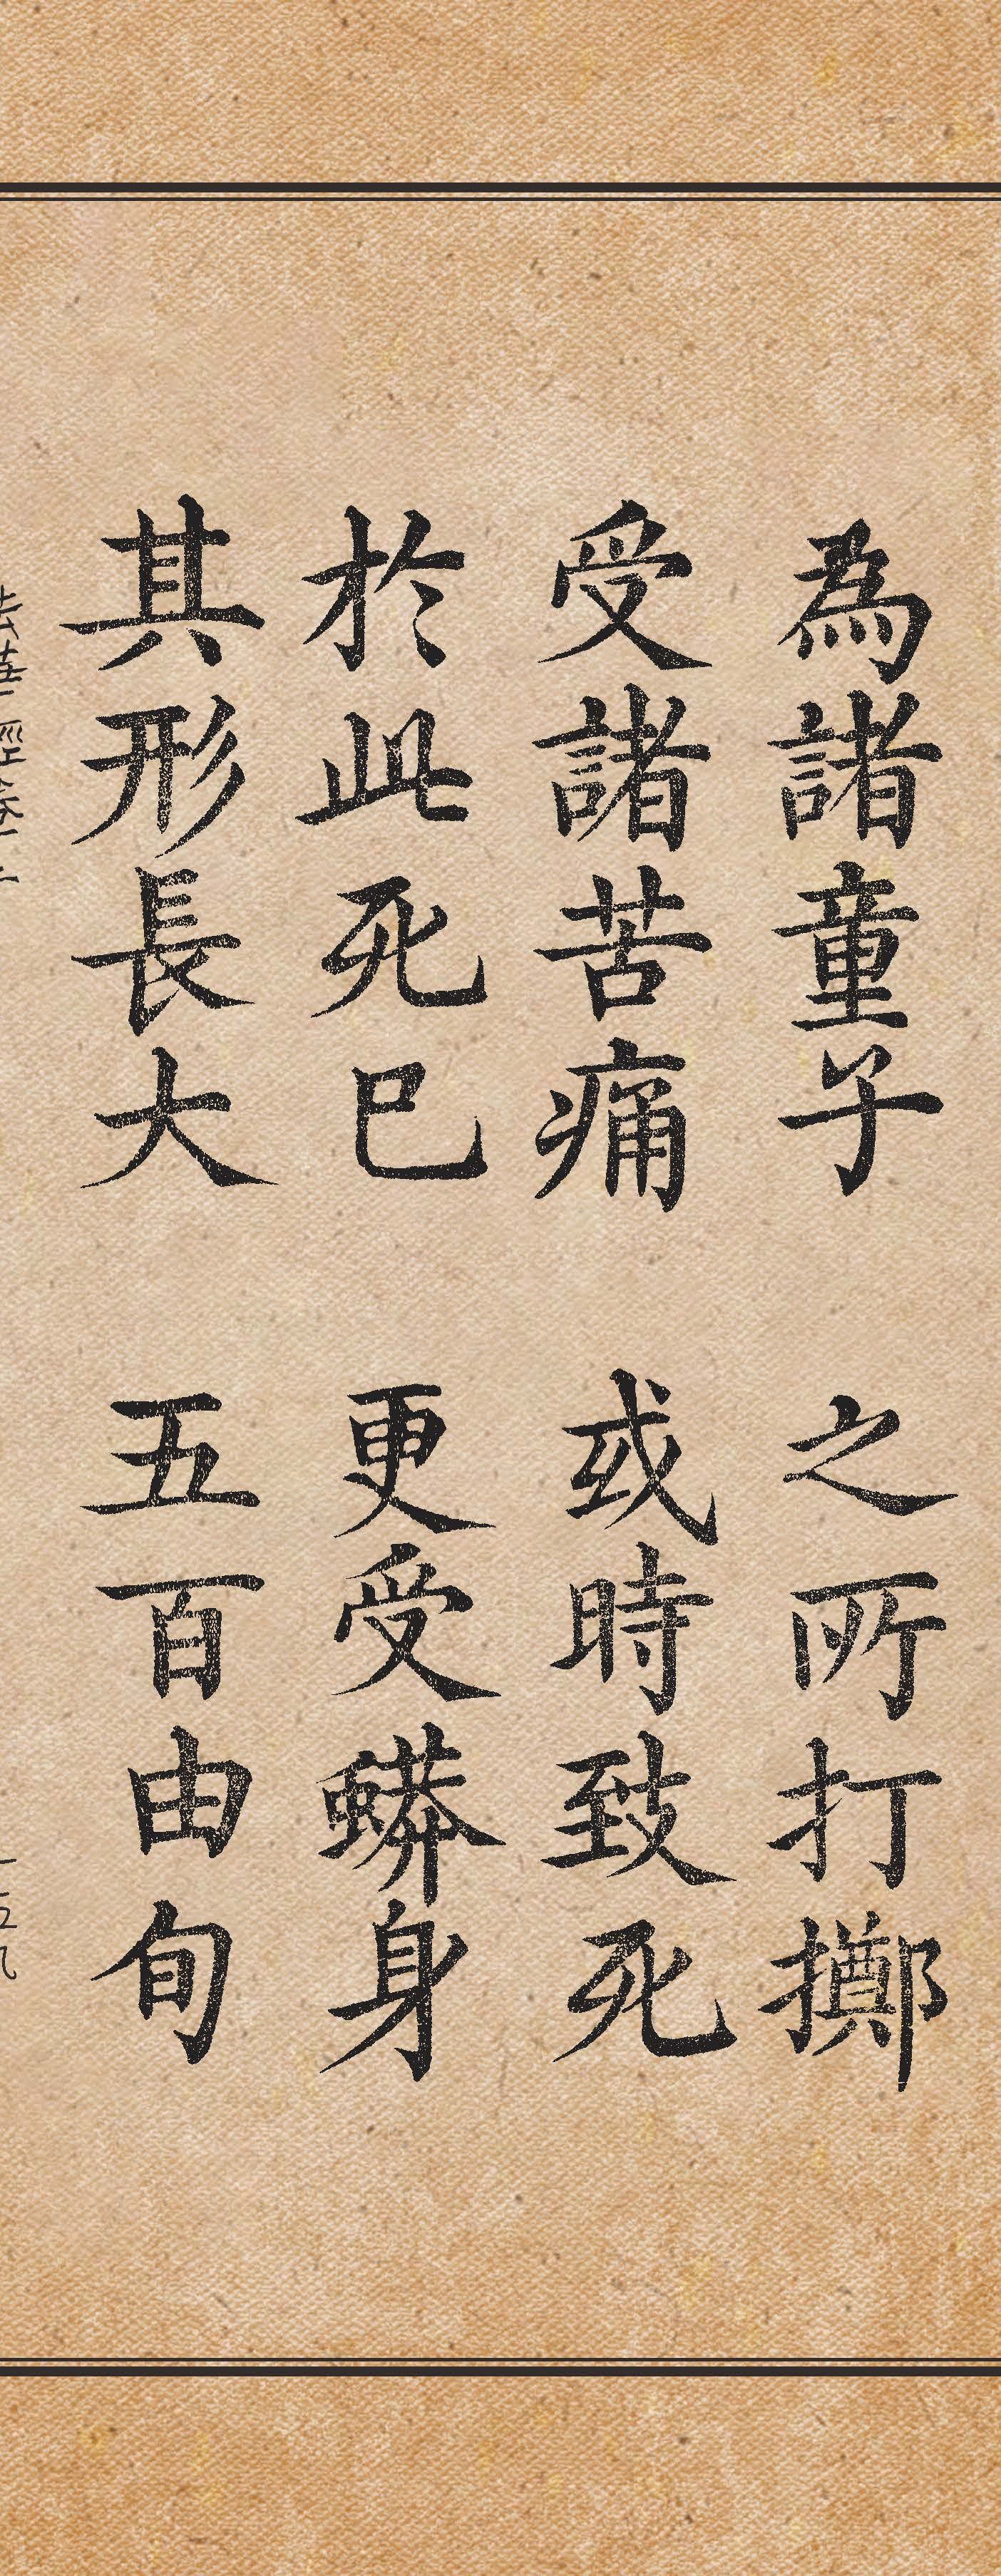 為諸童子 之所打擲
受諸苦痛 或時致死
於此死已 更受蟒身
其形長大 五百由旬